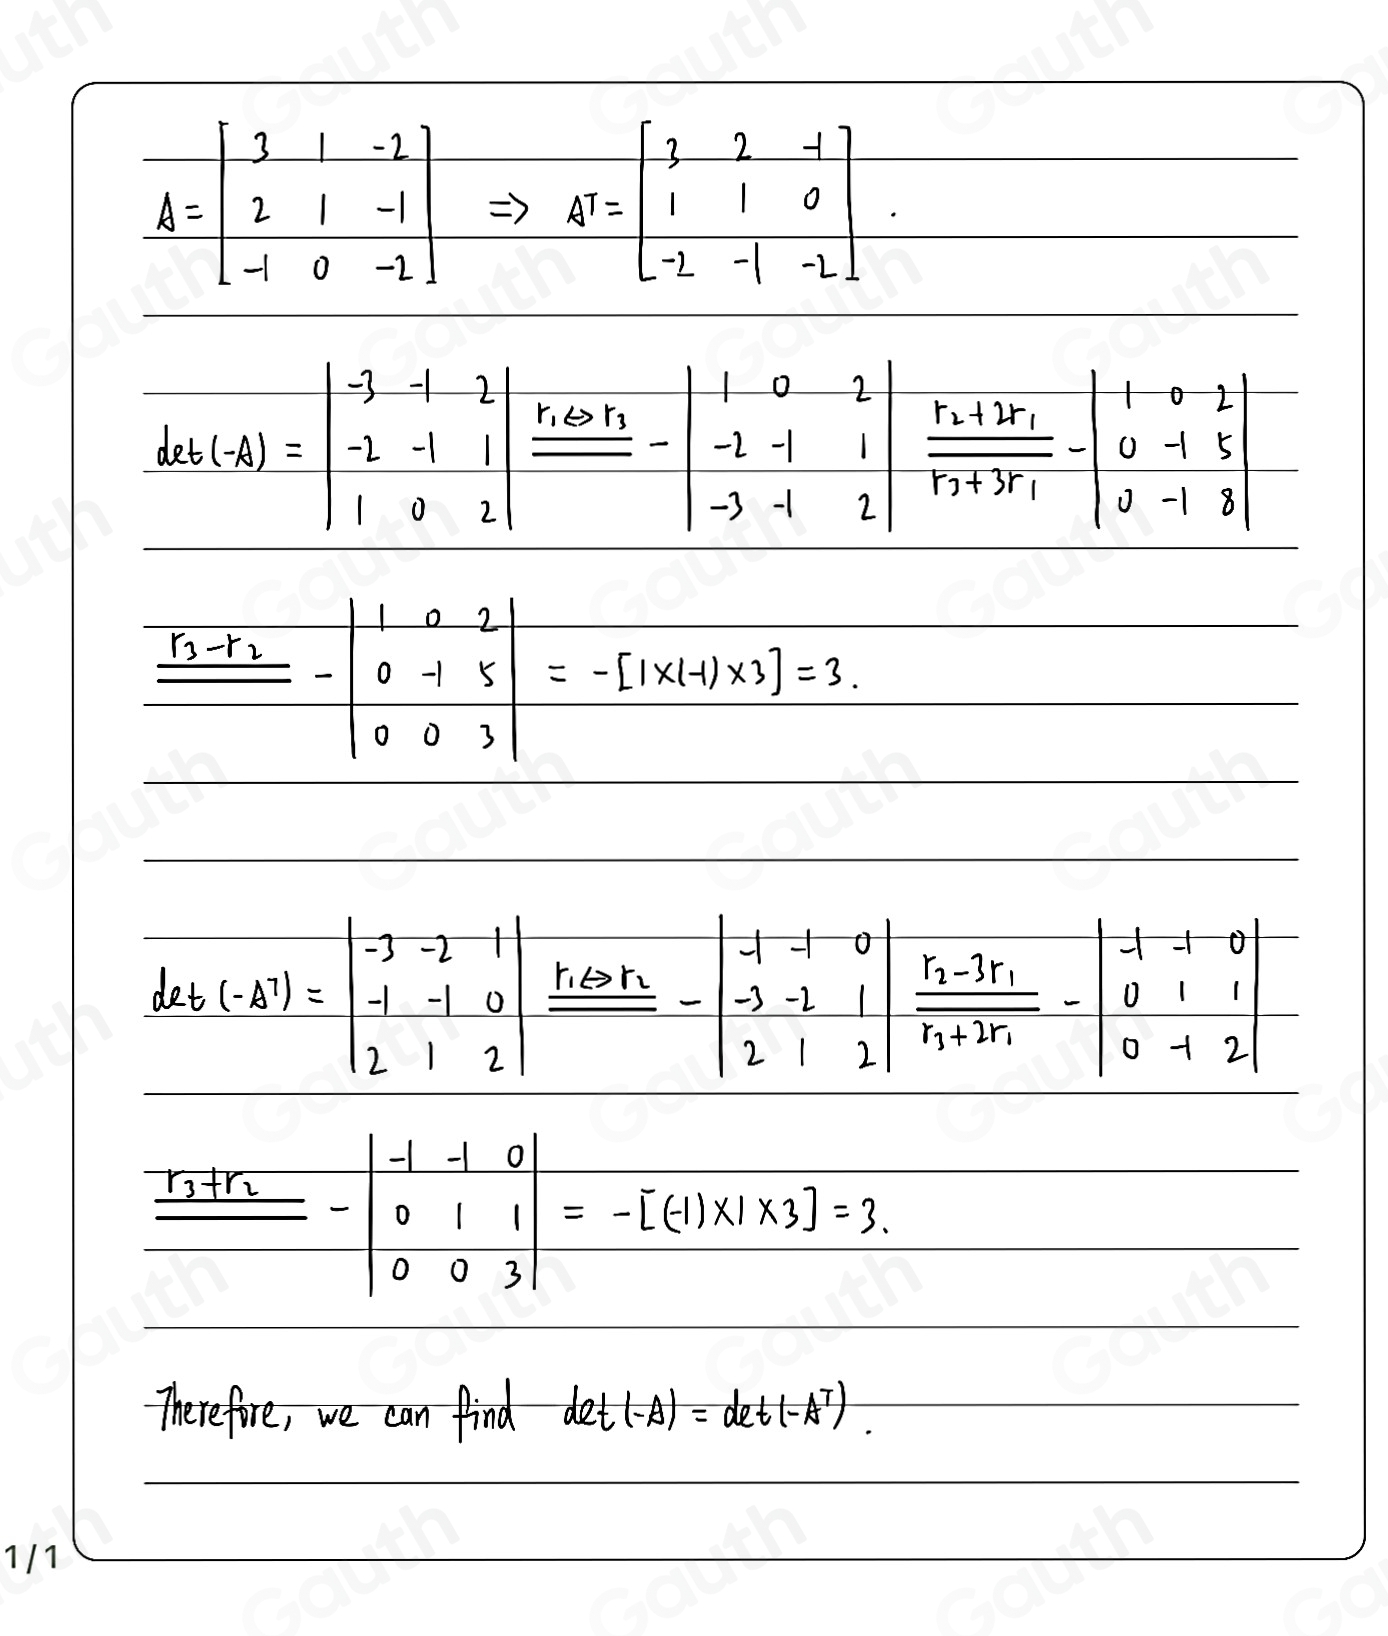 A = [ 3 1 -2 ; 2 1 -1 ; -1 0 -2 ] => Aᵀ = [ 3 2 -1 ; 1 1 0 ; -2 -1 -2 ] .
det(-A) = | -3 -1 2 ; -2 -1 1 ; 1 0 2 | r₁⇔r₃ - | 1 0 2 ; -2 -1 1 ; -3 -1 2 | r₂+2r₁ r₃+3r₁ - | 1 0 2 ; 0 -1 5 ; 0 -1 8 |
r₃-r₂ - | 1 0 2 ; 0 -1 5 ; 0 0 3 | = -[1×(-1)×3] = 3.
det(-Aᵀ) = | -3 -2 1 ; -1 -1 0 ; 2 1 2 | r₁⇔r₂ - | -1 -1 0 ; -3 -2 1 ; 2 1 2 | r₂-3r₁ r₃+2r₁ - | -1 -1 0 ; 0 1 1 ; 0 -1 2 |
r₃+r₂ - | -1 -1 0 ; 0 1 1 ; 0 0 3 | = -[(-1)×1×3] = 3.
Therefore, we can find det(-A) = det(-Aᵀ).
1/1
Gauth